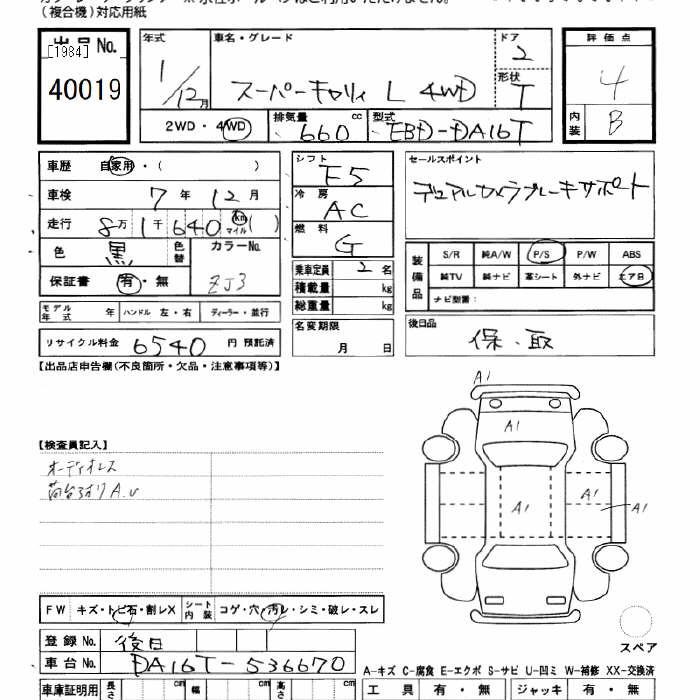 (複合機)対応用紙
出品 No.
[1984]
40019
年式
車名・グレード
ドア
2
1/12月
スーパーキャリィ L 4WD
形状
T
2WD・4WD
排気量
660
cc
型式
EBD-DA16T
評価点
4
内装
B
車歴 自家用・( )
車検 7年 12月
走行 8万 1千 640 km マイル ( )
色 黒 色替 カラーNo.
保証書 有・無 ZJ3
モデル年式 年 ハンドル 左・右 ディーラー・並行
リサイクル料金 6540 円 預託済
シフト
F5
冷房
AC
燃料
G
乗車定員 2 名
積載量 kg
総重量 kg
名変期限
月 日
セールスポイント
デュアルカメラブレーキサポート
装備品
S/R 純A/W P/S P/W ABS
純TV 純ナビ 革シート 外ナビ エアB
ナビ型番:
後日品
保・取
【出品店申告欄(不良箇所・欠品・注意事項等)】
【検査員記入】
オーディオレス
荷台うおりA.U
A1
A1
A1
A1
A1
スペア
FW キズ・トビ石・割レX シート内装 コゲ・穴・汚レ・シミ・破レ・スレ
登録 No. 後日
車台 No. DA16T-536670
A-キズ C-腐食 E-エクボ S-サビ U-凹ミ W-補修 XX-交換済
車庫証明用 長さ cm 幅 cm 高さ cm
工具 有・無 ジャッキ 有・無